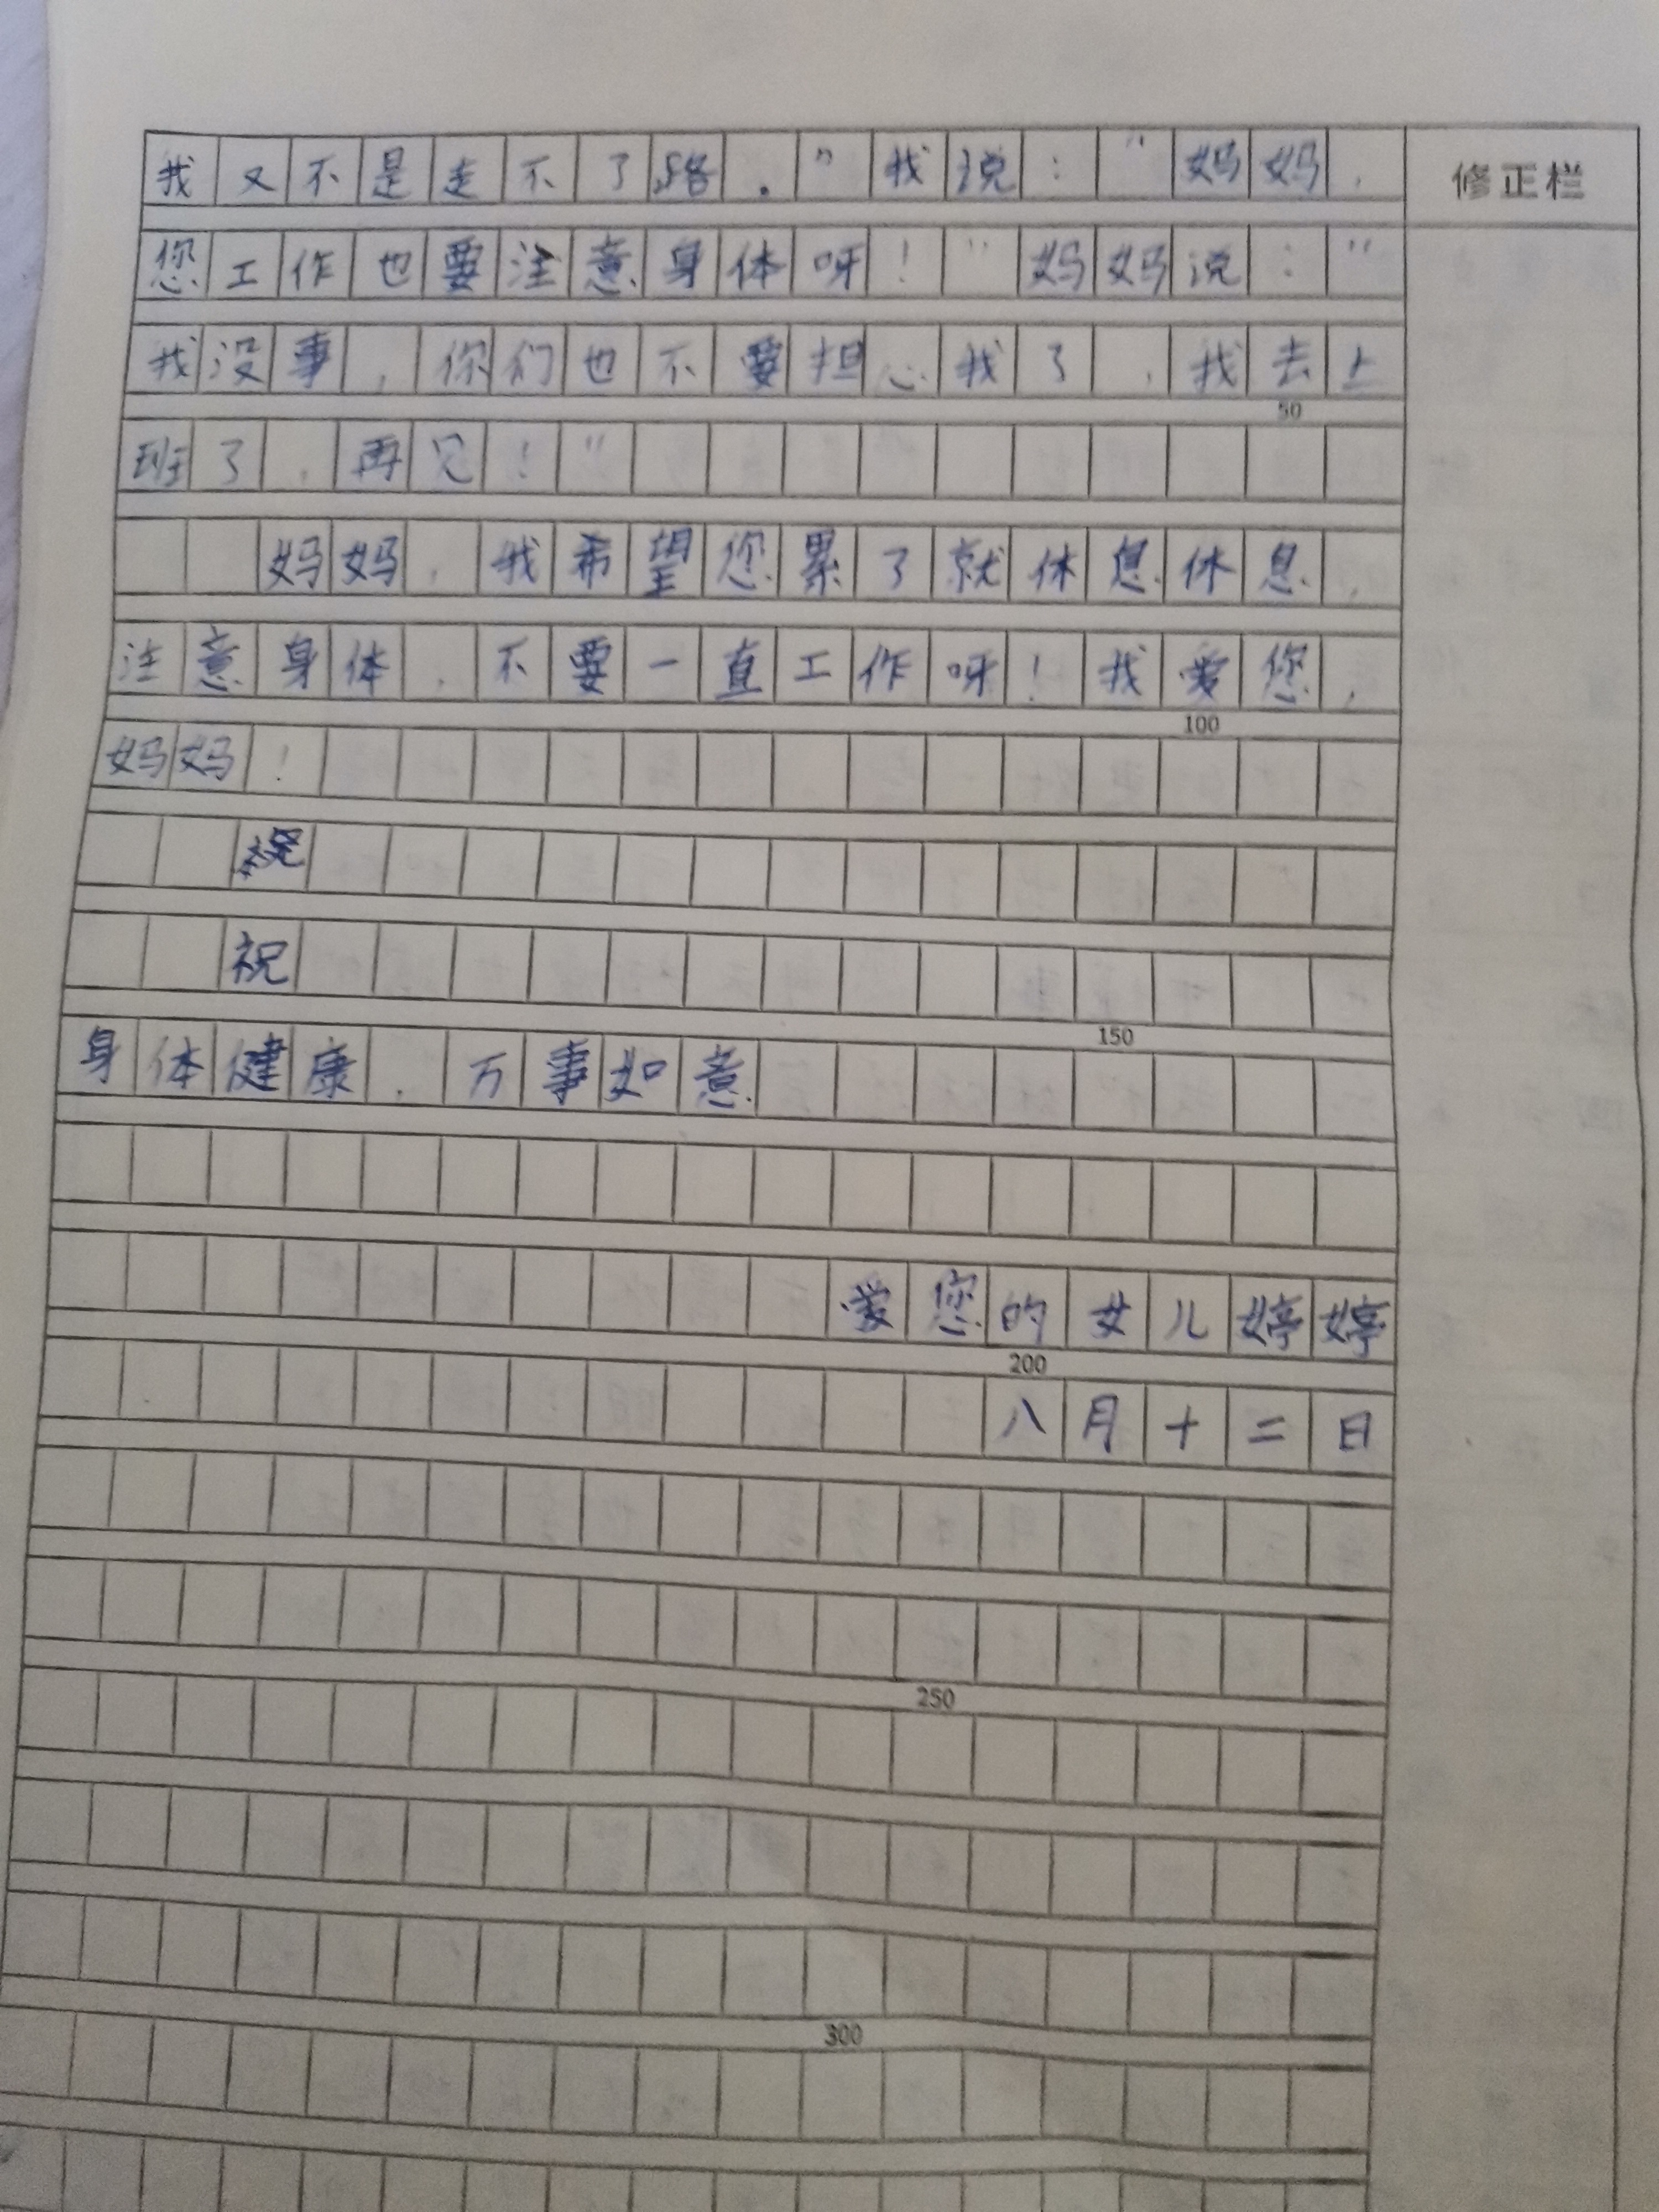 我又不是走不了路。”我说：“妈妈，
修正栏
您工作也要注意身体呀！”妈妈说：“
我没事，你们也不要担心我了，我去上
50
班了，再见！”
妈妈，我希望您累了就休息休息，
注意身体，不要一直工作呀！我爱您，
100
妈妈！
祝
150
身体健康，万事如意
爱您的女儿婷婷
200
八月十二日
250
300